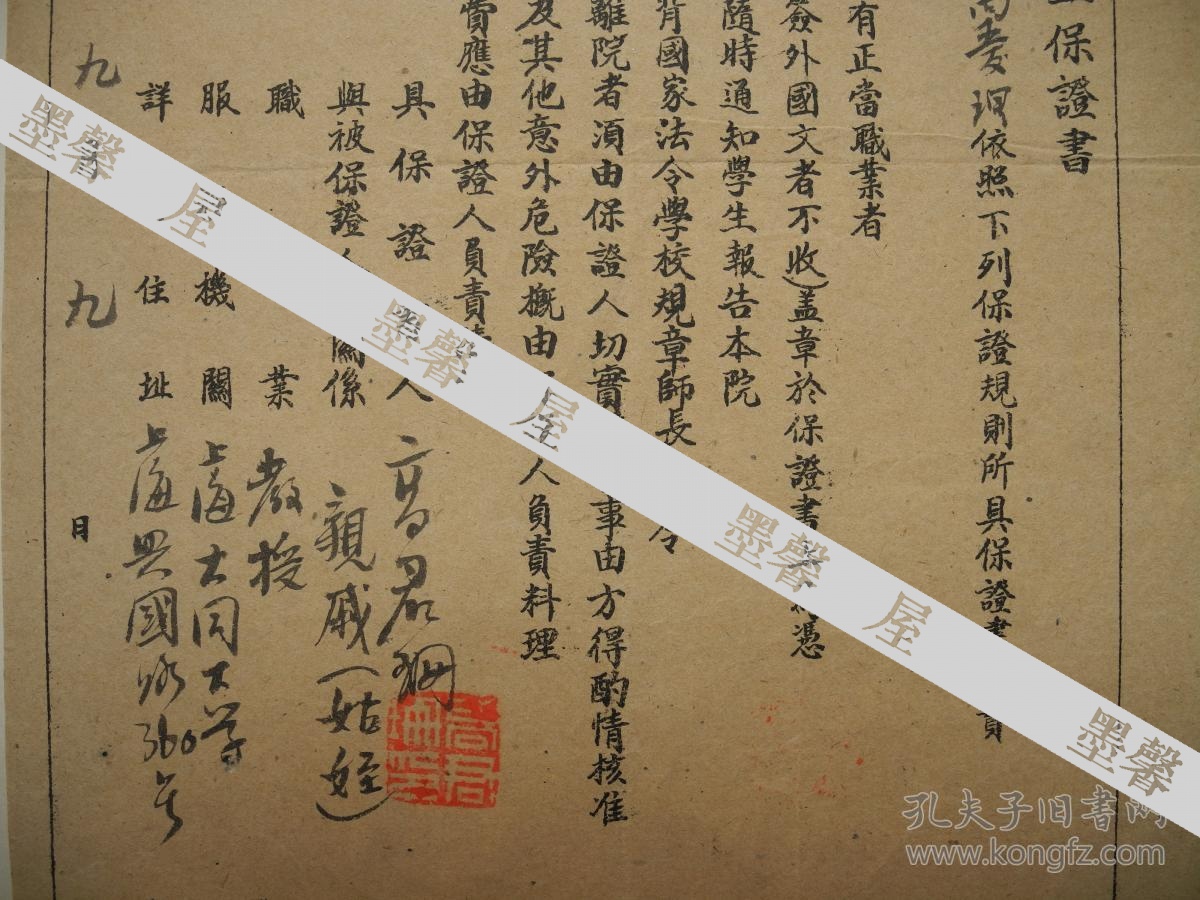 保證書
依照下列保證規則所具保證書
有正當職業者
簽外國文者不收蓋章於保證書 憑
隨時通知學生報告本院
背國家法令學校規章師長 令
離院者須由保證人切實 事由方得酌情核准
及其他意外危險概由 人負責料理
費應由保證人負責
具保證人 高君珊
與被保證人關係 親戚(姑姪)
職業 教授
服 機關 上海大同大學
詳 住址 上海興國路360号
九 九 月
墨馨屋
墨馨屋
墨馨屋
墨馨
孔夫子旧书网
www.kongfz.com